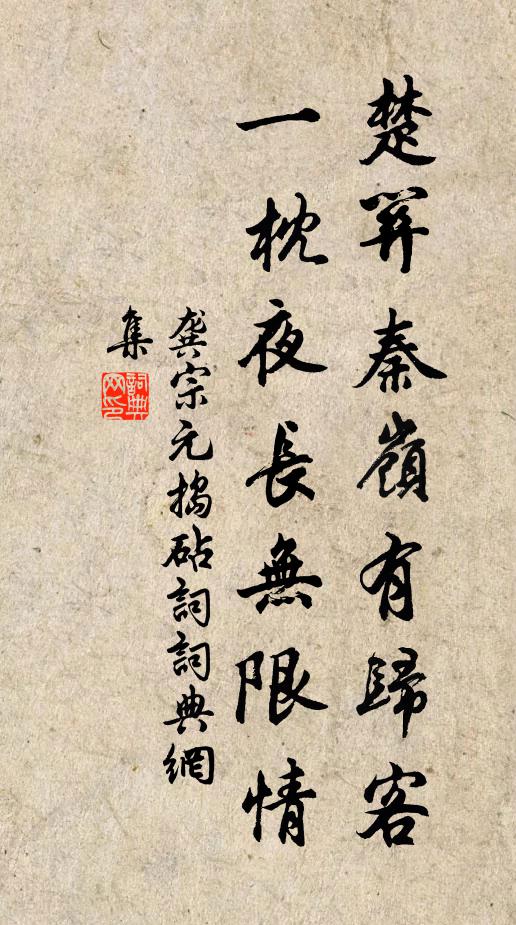 楚關秦嶺有歸客
一枕夜長無限情
龔宗元搗砧詞詞典網
集
詞典
网印